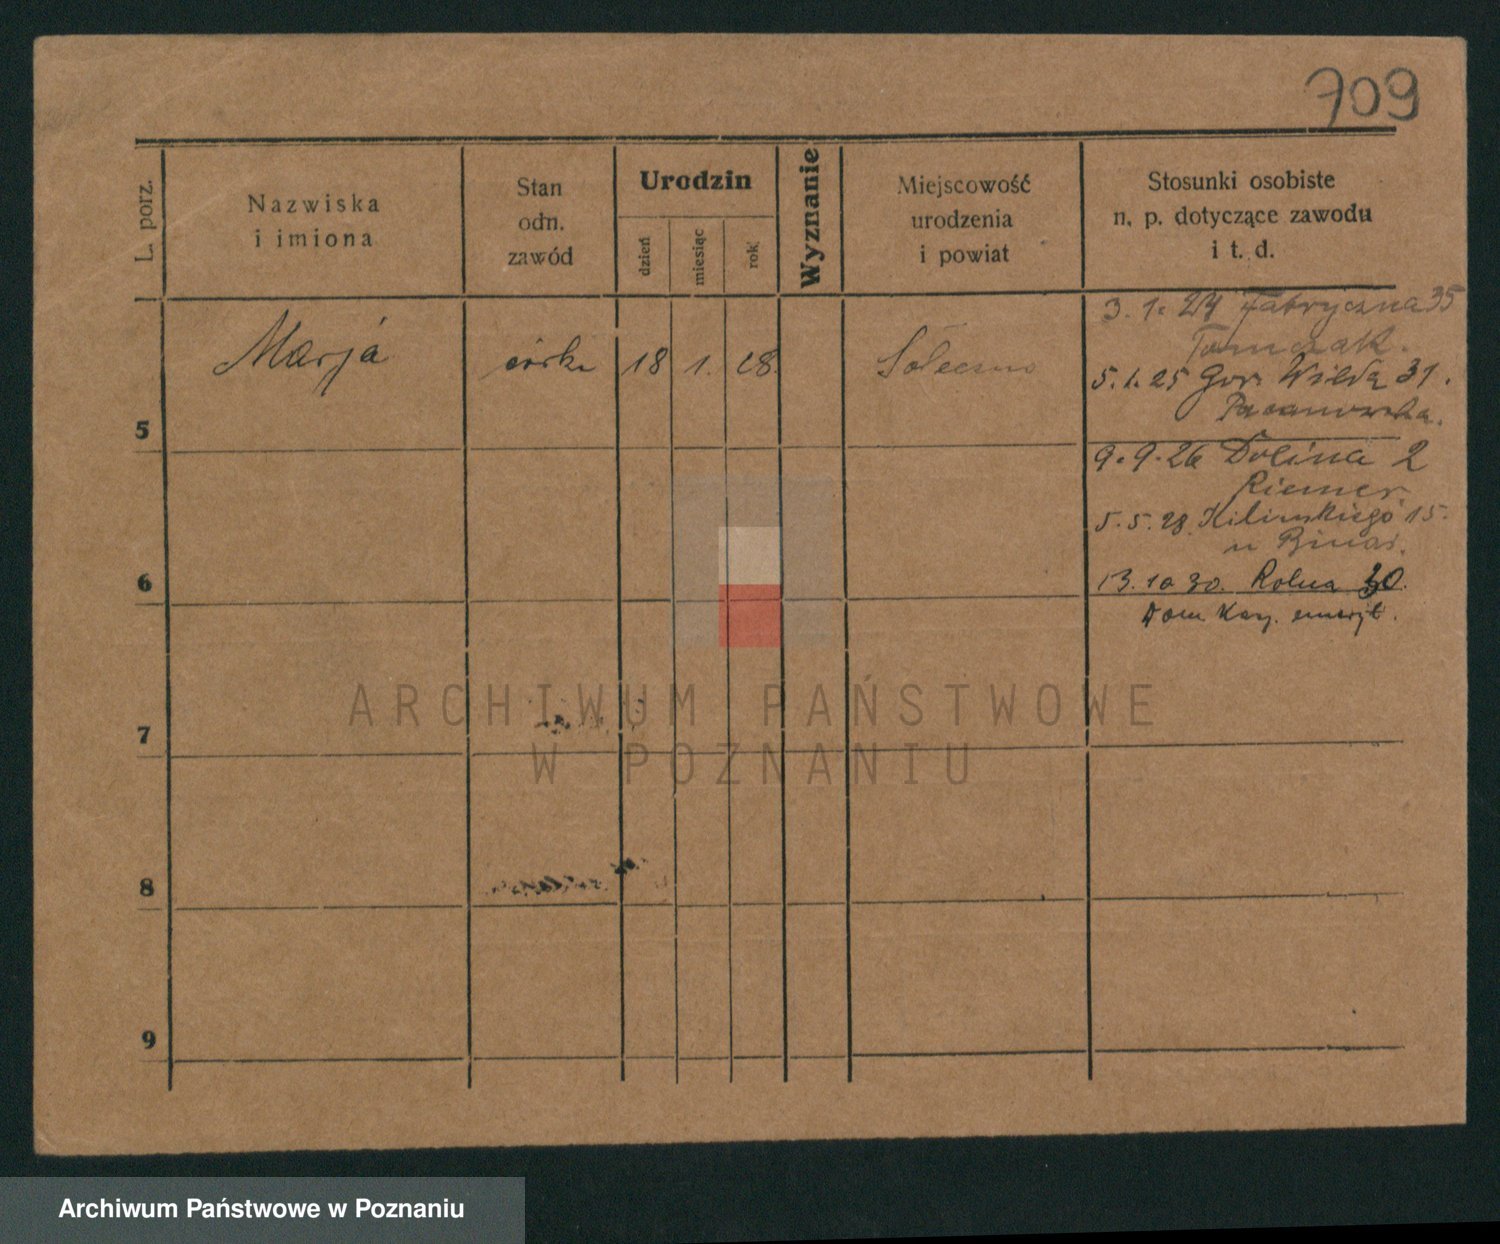 709
L. porz.
Nazwiska
i imiona
Stan
odn.
zawód
Urodzin
dzień
miesiąc
rok
Wyznanie
Miejscowość
urodzenia
i powiat
Stosunki osobiste
n. p. dotyczące zawodu
i t. d.
5
Marja
córka
18
1.
28.
3. 1. 24 Fabryczna 35
Tomczak.
5. 1. 25 Gor. Wilda 31.
9. 9. 26 Dolina 2
Riemer.
5. 5. 28. Kilinskiego 15.
u
6
13. 10 30. Rolna
Dom Kay. emeryt.
7
8
9
ARCHIWUM PAŃSTWOWE
W POZNANIU
Archiwum Państwowe w Poznaniu